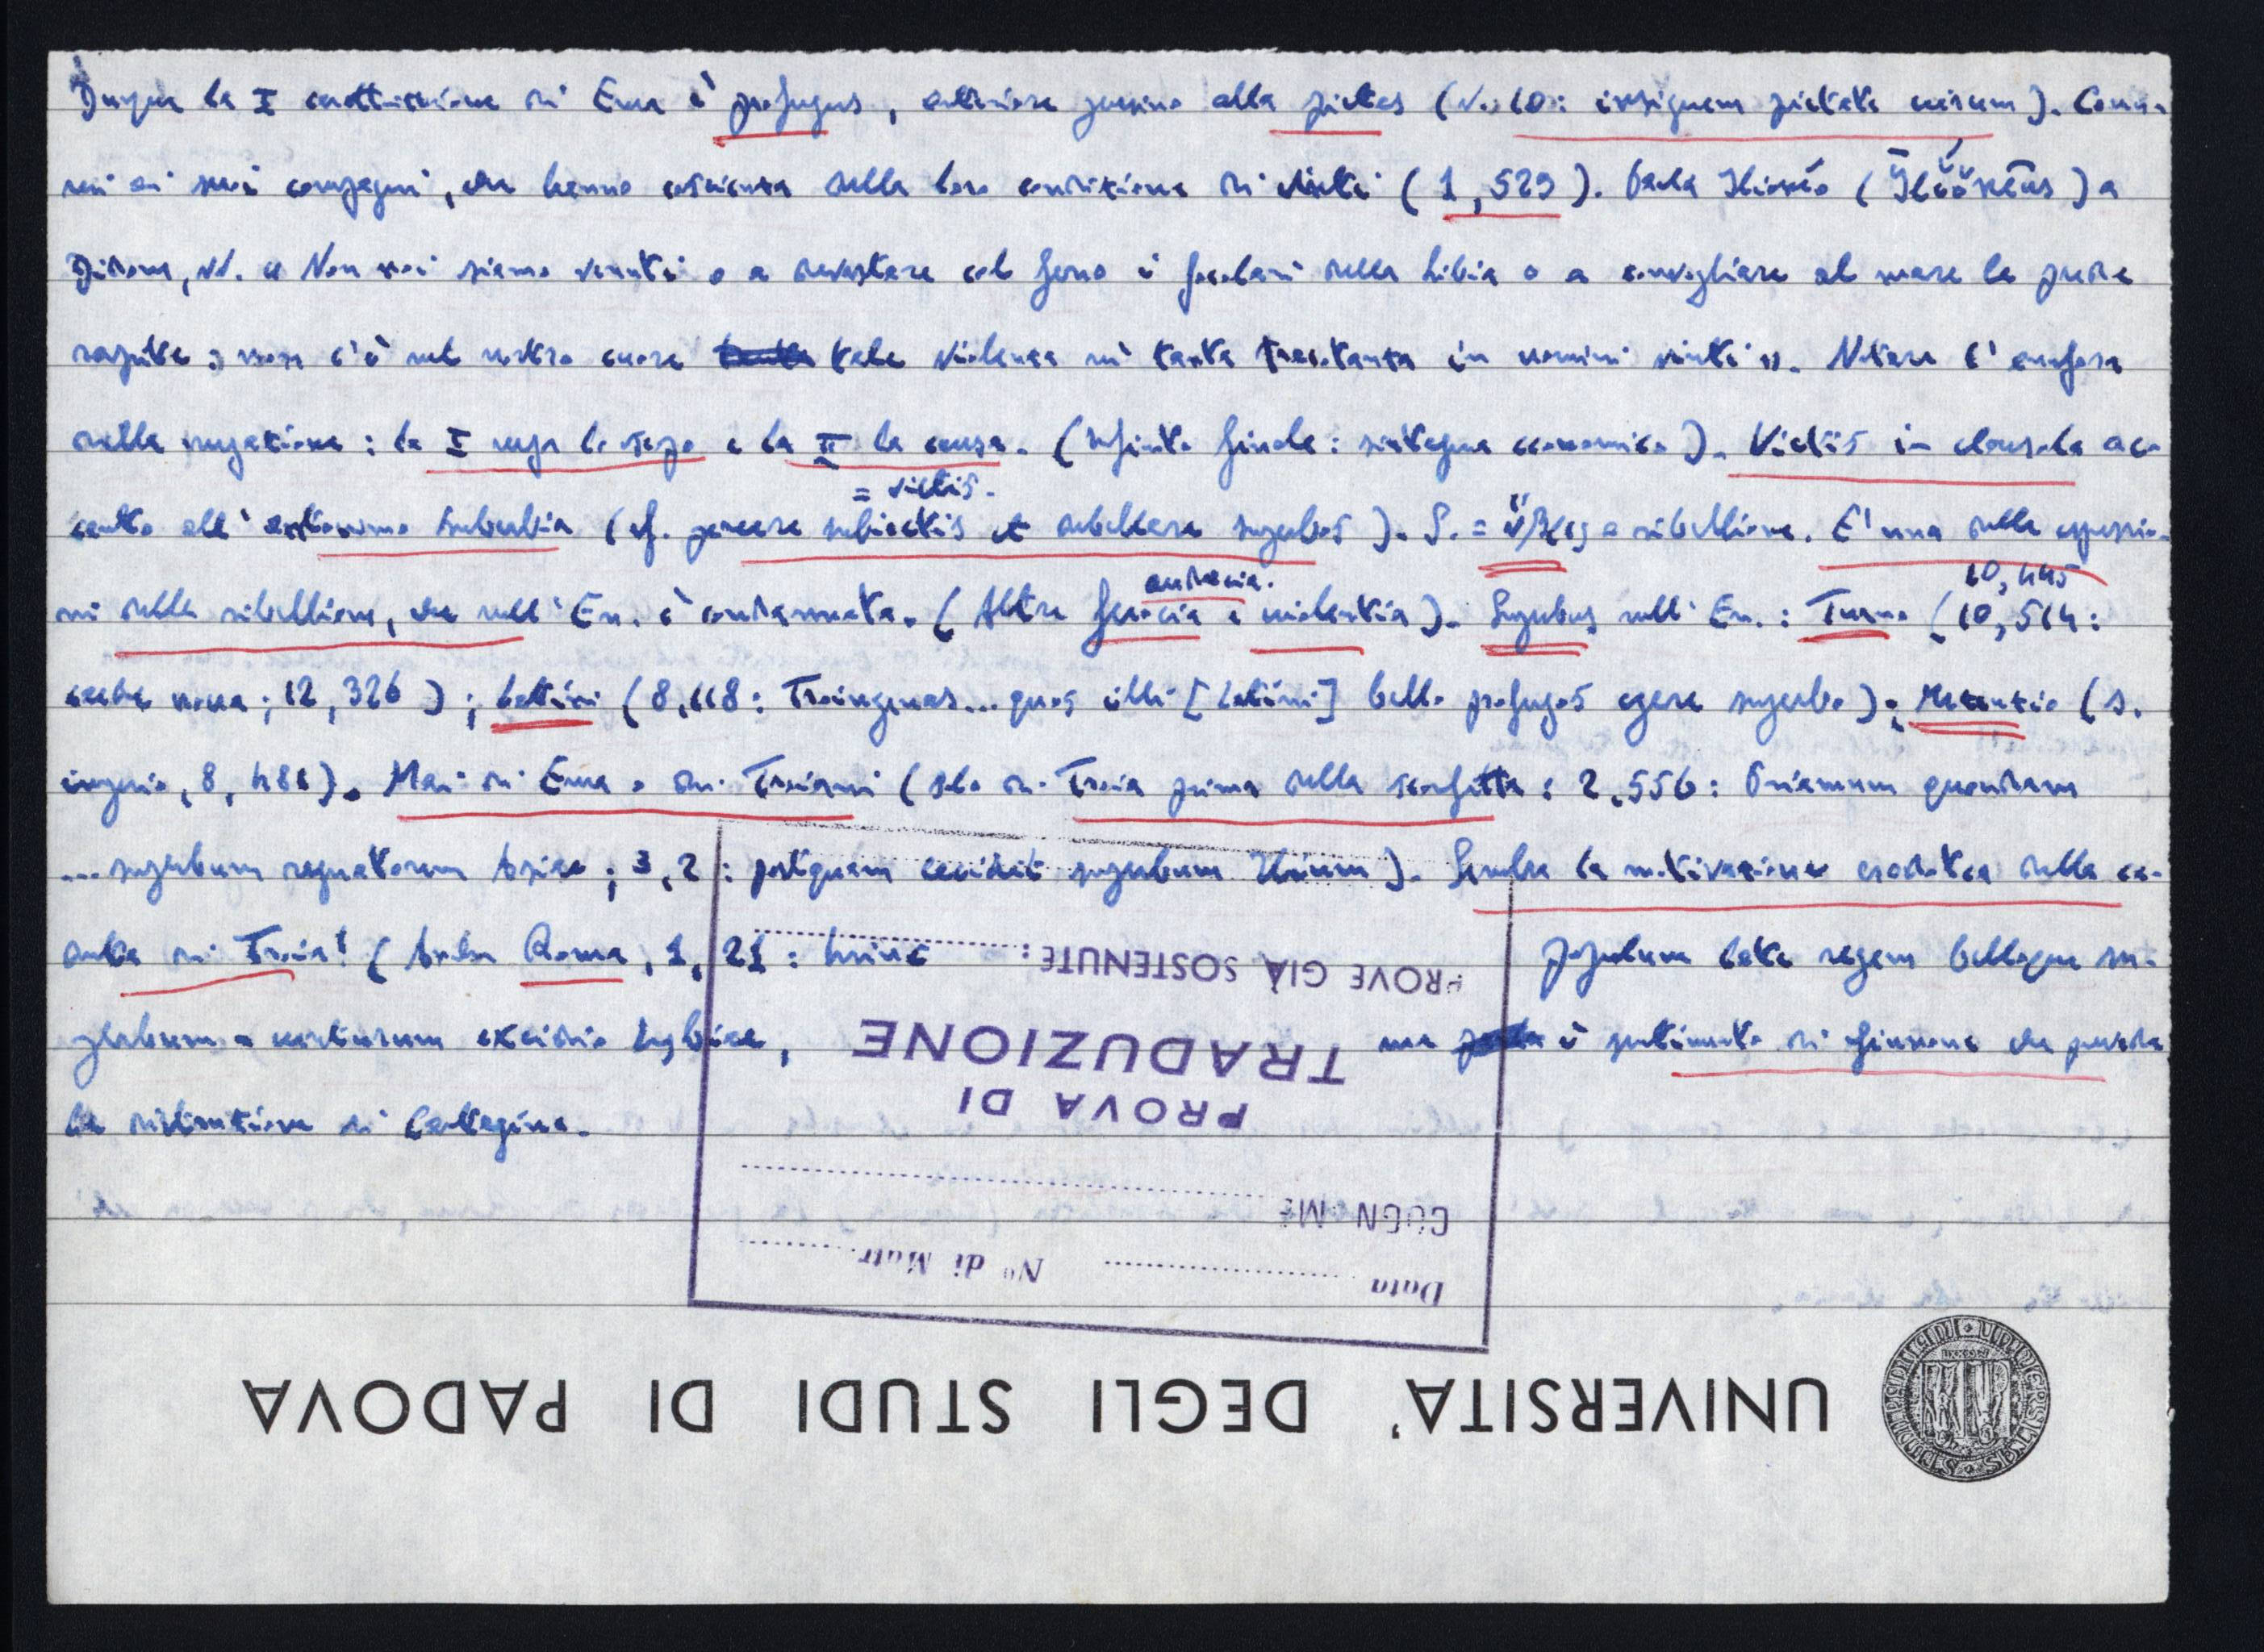 Dunque la I connotazione di Enea è profugus, anteriore persino alla pietas (v. 10: insignem pietate virum). Comu-
ni ai suoi compagni, che hanno coscienza della loro condizione di vinti (1, 529). Parla Ilioneo (Īlĭŏnēus) a
Didone, vv. « Non noi siamo venuti o a devastare col ferro i focolari della Libia o a convogliare al mare le prede
rapite; non c'è nel nostro cuore tale violenza né tanta tracotanza in uomini vinti ». Notare l'anafora
della negazione: la I nega lo scopo e la II la causa. ( finale: ). Victis in clausola ac-
= victis.
canto all'antonimo superbia (cf. parcere subiectis et debellare superbos). S. = ὕβρις o ribellione. E' una delle espressio-
audacia.
10, 445
ni della ribellione, che nell'En. è condannata. (Altre ferocia e violentia). Superbus nell'En.: Turno (10, 514:
caede nova; 12, 326); Latini (8, 118: Troiugenas... quos illi [Latini] bello profugos egere superbo); Mezenzio (s.
imperio, 8, 481). Mai di Enea o dei Troiani (solo di Troia prima della sconfitta: 2, 556: Priamum quondam
... superbum regnatorem Asiae; 3, 2: postquam cecidit superbum Ilium). Sembra la motivazione erodotea della ca-
duta di Troia! (Anche Roma, 1, 21: hinc populum late regem belloque su-
perbum venturum excidio Lybiae, ma è sentimento di Giunone che pensa
la distruzione di Cartagine.
PROVE GIÀ SOSTENUTE:
PROVA DI
TRADUZIONE
COGNOME
Data N° di Matr.
UNIVERSITA' DEGLI STUDI DI PADOVA